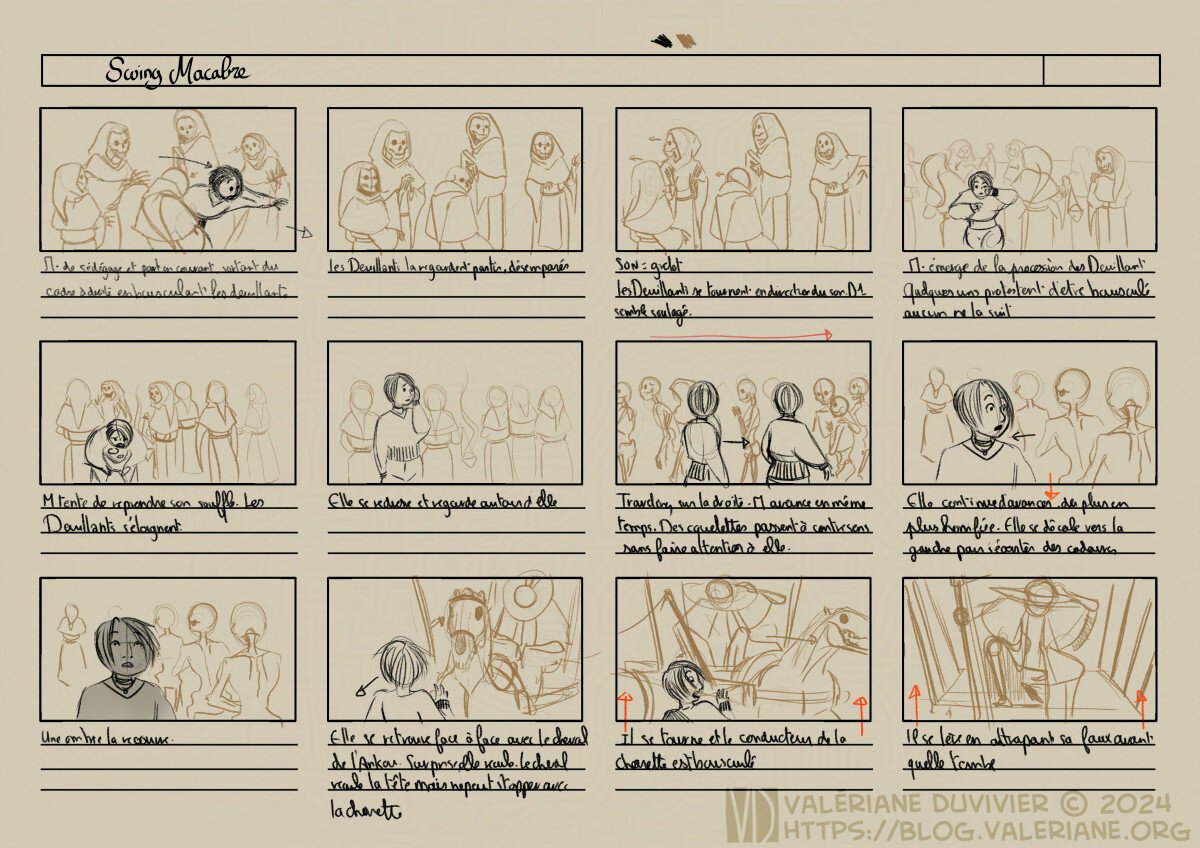 Swing Macabre
M. de se dégage et part en courant sortant du
cadre à droite en bousculant les deuillants.
les Deuillants la regardent partir, désemparés
SON = grelot
les Deuillants se tournent en direction du son D1
semble soulagé.
M. émerge de la procession des Deuillant
Quelques uns protestent d'être bousculé
aucun ne la suit
M tente de reprendre son souffle. Les
Deuillants s'éloignent.
Elle se redresse et regarde autour d'elle
Travelling sur la droite. M avance en même
temps. Des squelettes passent à contresens
sans faire attention à elle.
Elle continue d'avancer de plus en
plus horrifiée. Elle se décale vers la
gauche pour éviter des cadavres
Une ombre la recouvre.
Elle se retrouve face à face avec le cheval
de l'Ankou. Surprise elle recule. Le cheval
recule la tête mais ne peut stopper avec
la charette
Il se tourne et le conducteur de la
charette est bousculé
Il se lève en attrapant sa faux avant
quelle tombe
VALÉRIANE DUVIVIER © 2024
HTTPS://BLOG.VALERIANE.ORG